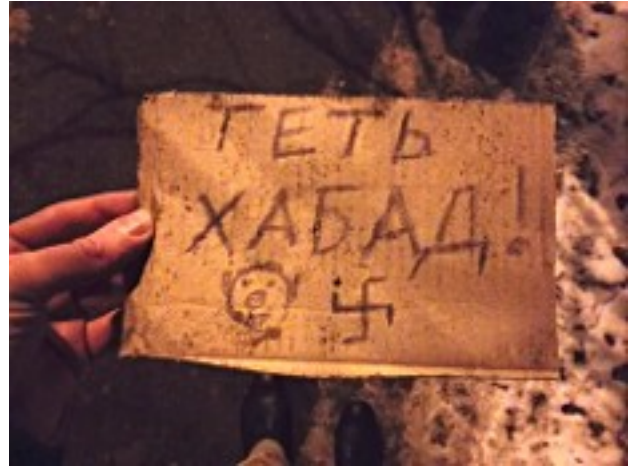 ГЕТЬ
ХАБАД!